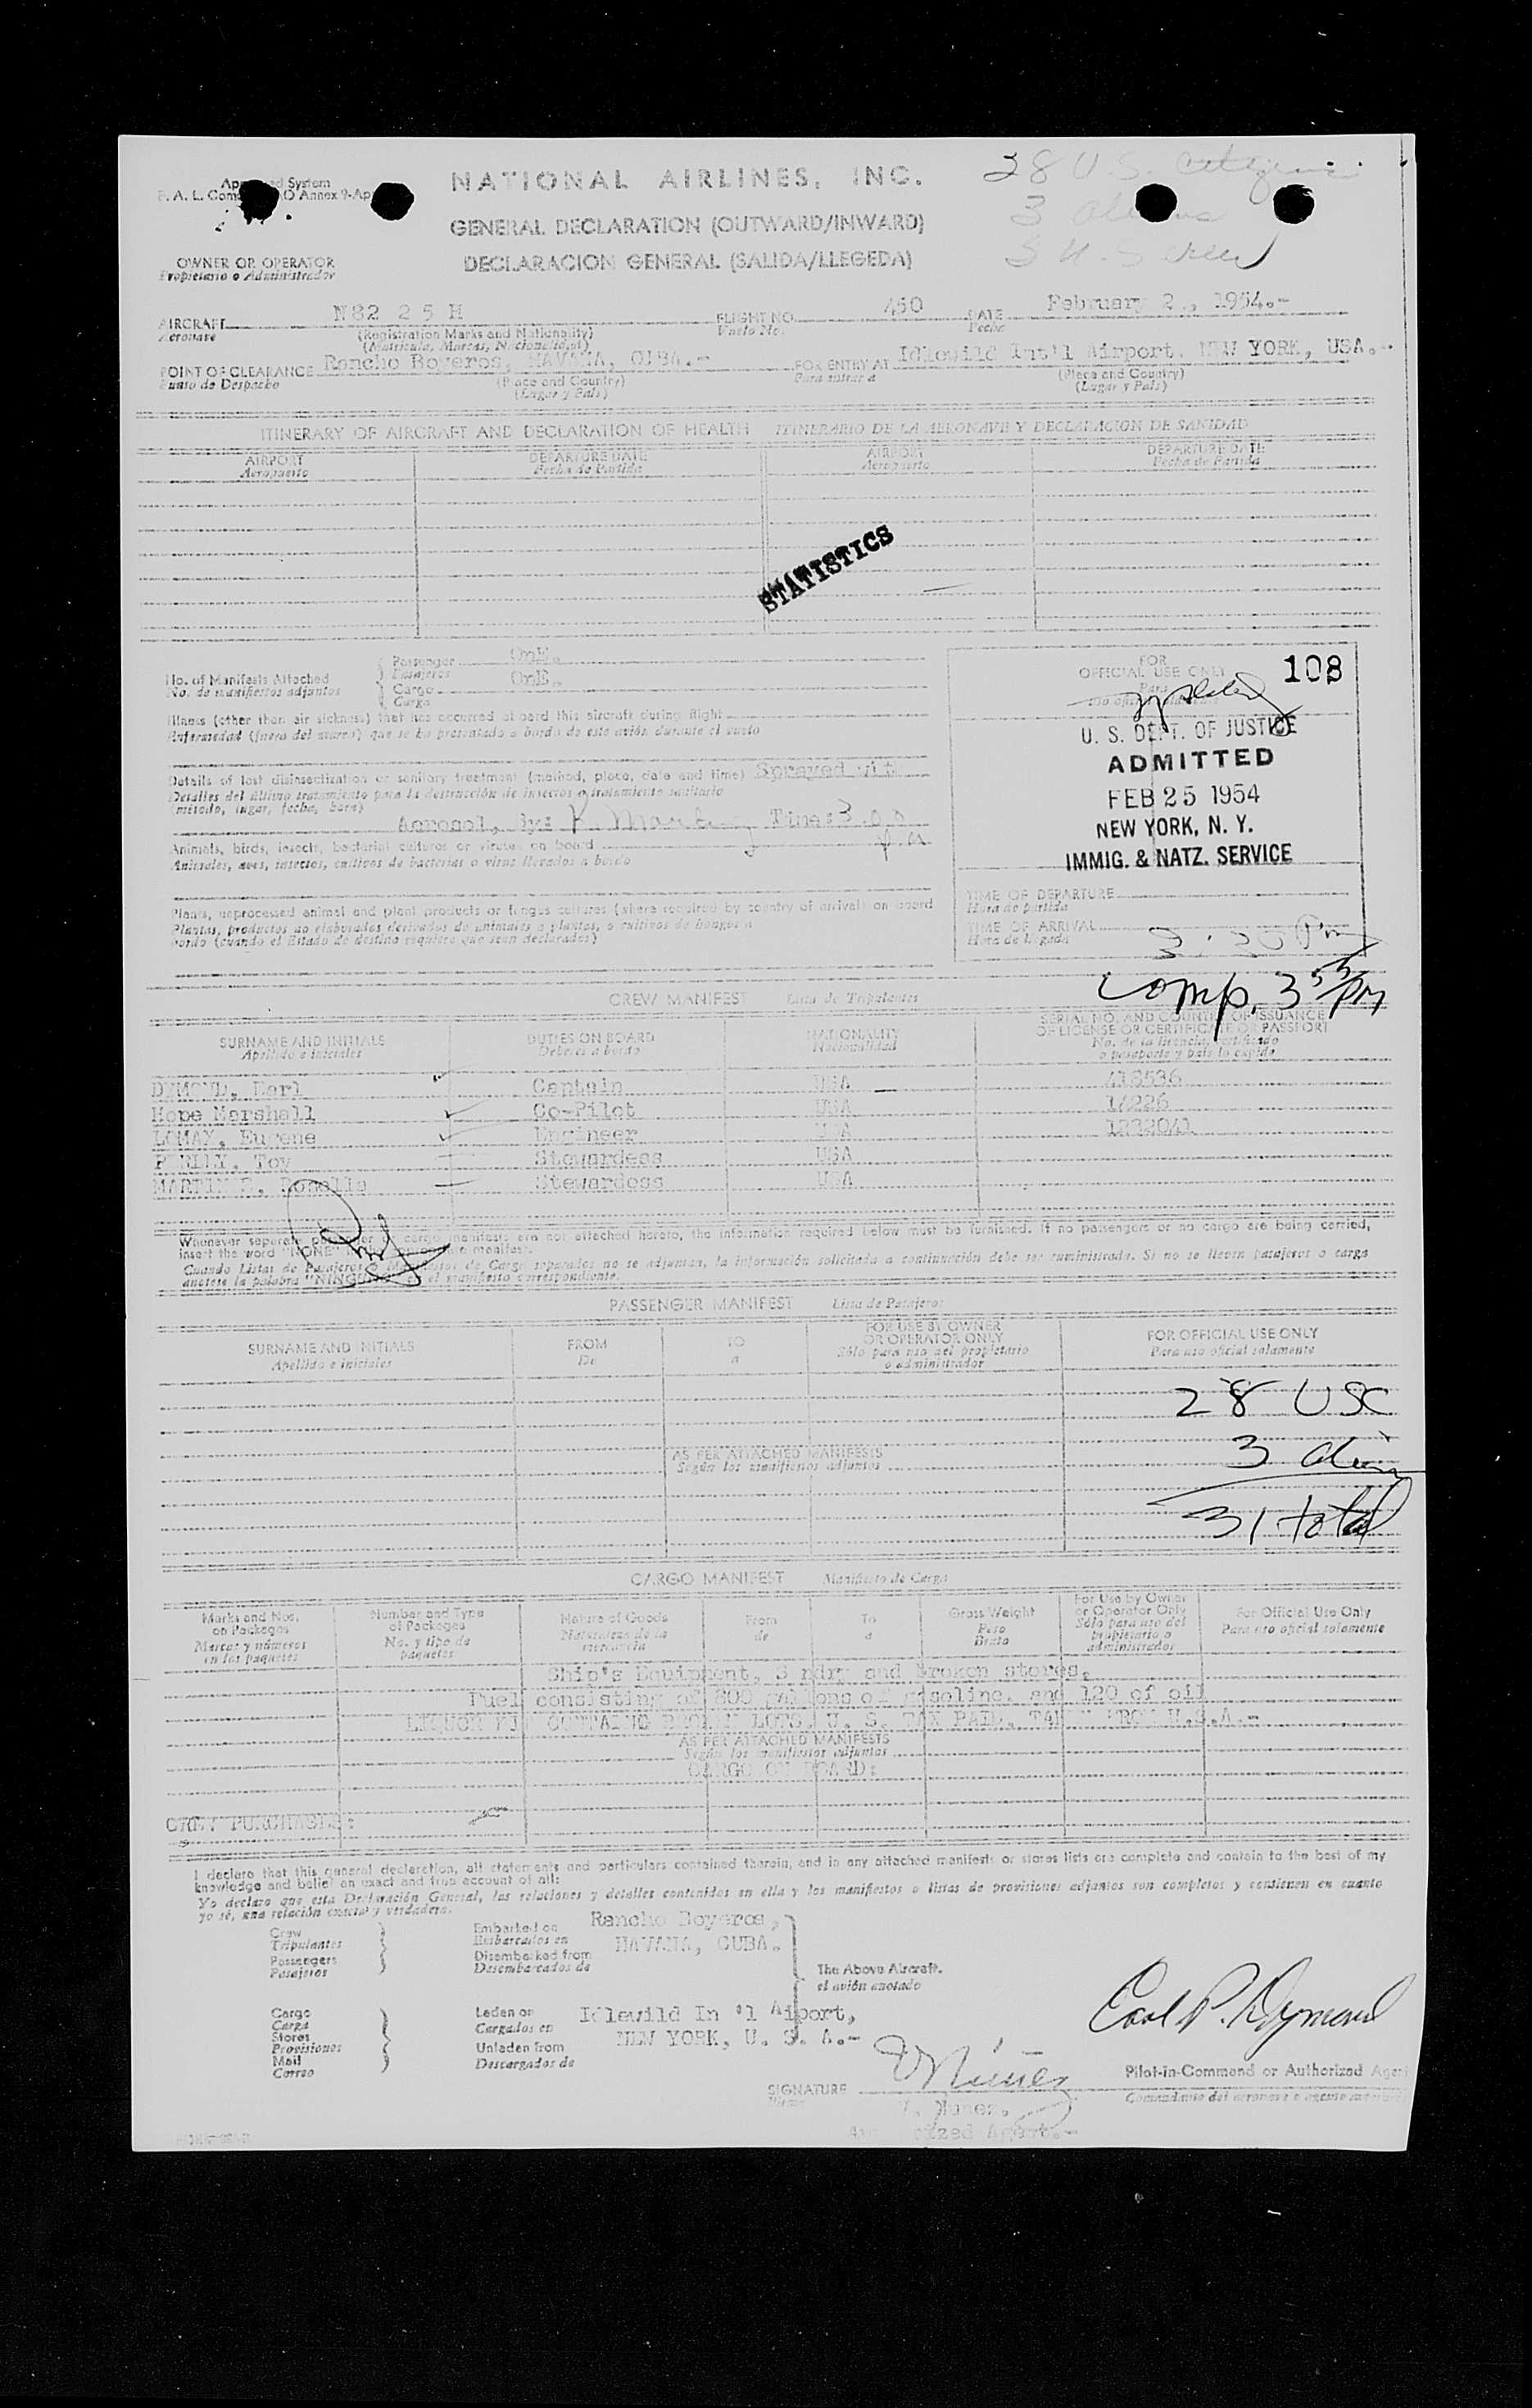 NATIONAL AIRLINES, INC.
28 U.S. Citizens
3 aliens
GENERAL DECLARATION (OUTWARD/INWARD)
DECLARACION GENERAL (SALIDA/LLEGEDA)
OWNER OR OPERATOR
Propietario o Administrador
AIRCRAFT N82 2 5 H FLIGHT NO. 450 DATE February 2 , 1954.-
Aeronave (Registration Marks and Nationality) Vuelo No. Fecha
POINT OF CLEARANCE Rancho Boyeros, HAVANA, CUBA.- FOR ENTRY AT Idlewild Int'l Airport. NEW YORK, USA.-
Punto de Despacho (Place and Country) Para entrar a (Place and Country)
(Lugar y País) (Lugar y País)
ITINERARY OF AIRCRAFT AND DECLARATION OF HEALTH ITINERARIO DE LA AERONAVE Y DECLARACION DE SANIDAD
AIRPORT DEPARTURE DATE AIRPORT DEPARTURE DATE
Aeropuerto Fecha de Partida Aeropuerto Fecha de Partida
STATISTICS
No. of Manifests Attached
No. de manifiestos adjuntos
Passenger OnE.
Pasajeros
Cargo OnE.
Carga
Illness (other than air sickness) that has occurred aboard this aircraft during flight
Enfermedad (fuera del mareo) que se ha presentado a bordo de este avión durante el vuelo
Details of last disinsectization or sanitary treatment (method, place, date and time) Sprayed wit
Detalles del último tratamiento para la destrucción de insectos o tratamiento sanitario
(método, lugar, fecha, hora)
Aerosol, By: Time: 3.00
Animals, birds, insects, bacterial cultures or viruses on board
Animales, aves, insectos, cultivos de bacterias o virus llevados a bordo
Plants, unprocessed animal and plant products or fungus cultures (where required by country of arrival) on board
Plantas, productos no elaborados derivados de animales o plantas, o cultivos de hongos a
bordo (cuando el Estado de destino requiere que sean declarados)
FOR
OFFICIAL USE ONLY 108
Para
U. S. DEPT. OF JUSTICE
ADMITTED
FEB 25 1954
NEW YORK, N. Y.
IMMIG. & NATZ. SERVICE
TIME OF DEPARTURE
Hora de partida
TIME OF ARRIVAL
Hora de llegada
Comp. 3 55 pm
CREW MANIFEST Lista de Tripulantes
SURNAME AND INITIALS DUTIES ON BOARD NATIONALITY SERIAL NO. AND COUNTRY OF ISSUANCE
OF LICENSE OR CERTIFICATE OR PASSPORT
Apellido e iniciales Deberes a bordo Nacionalidad No. de la licencia, certificado
o pasaporte y país lo expide
DYMOND, Earl Captain USA 418536
Hope Marshall Co-Pilot USA 14226
LOMAX, Eugene Engineer USA 1232041
Toy Stewardess USA
Stewardess USA
Whenever separate passenger or cargo manifests are not attached hereto, the information required below must be furnished. If no passengers or no cargo are being carried,
insert the word "NONE" manifest.
Cuando Listas de Pasajeros o Manifiestos de Carga separados no se adjuntan, la información solicitada a continuación debe ser suministrada. Si no se llevan pasajeros o carga
anotese la palabra "NINGUNO" en el manifiesto correspondiente.
PASSENGER MANIFEST Lista de Pasajeros
SURNAME AND INITIALS FROM TO FOR USE BY OWNER
OR OPERATOR ONLY FOR OFFICIAL USE ONLY
Apellido e iniciales De a Sólo para uso del propietario
o administrador Para uso oficial solamente
28 USC
3 alien
31 total
AS PER ATTACHED MANIFESTS
Según los manifiestos adjuntos
CARGO MANIFEST Manifiesto de Carga
Marks and Nos.
on Packages
Marcas y números
en los paquetes
Number and Type
of Packages
No. y tipo de
paquetes
Nature of Goods
Naturaleza de la
mercancía
From
de
To
a
Gross Weight
Peso
Bruto
For Use by Owner
or Operator Only
Sólo para uso del
propietario o
administrador
For Official Use Only
Para uso oficial solamente
Ship's Equipment, S ndry and broken stores.
Fuel consisting of 800 gallons of gasoline. and 120 of oil
LIQUOR KIT CONTAING BROKEN LOTS, U. S. TAX PAID, TAKEN FROM U.S.A.-
AS PER ATTACHED MANIFESTS
Según los manifiestos adjuntos
CARGO ON BOARD:
CREW PURCHASES:
I declare that this general declaration, all statements and particulars contained therein, and in any attached manifests or stores lists are complete and contain to the best of my
knowledge and belief an exact and true account of all:
Yo declaro que esta Declaración General, las relaciones y detalles contenidos en ella y los manifiestos o listas de provisiones adjuntos son completos y contienen en cuanto
yo sé, una relación exacta y verdadera.
Crew
Tripulantes
Passengers
Pasajeros
Embarked on Rancho Boyeros,
Embarcados en HAVANA, CUBA.
Disembarked from
Desembarcados de
The Above Aircraft.
el avión anotado
Cargo
Carga
Stores
Provisiones
Mail
Correo
Laden on Idlewild In 'l Aiport,
Cargados en NEW YORK, U. S. A.-
Unladen from
Descargados de
Earl P. Dymond
Pilot-in-Command or Authorized Agent
SIGNATURE Nuñez
Nunez,
Agent.-